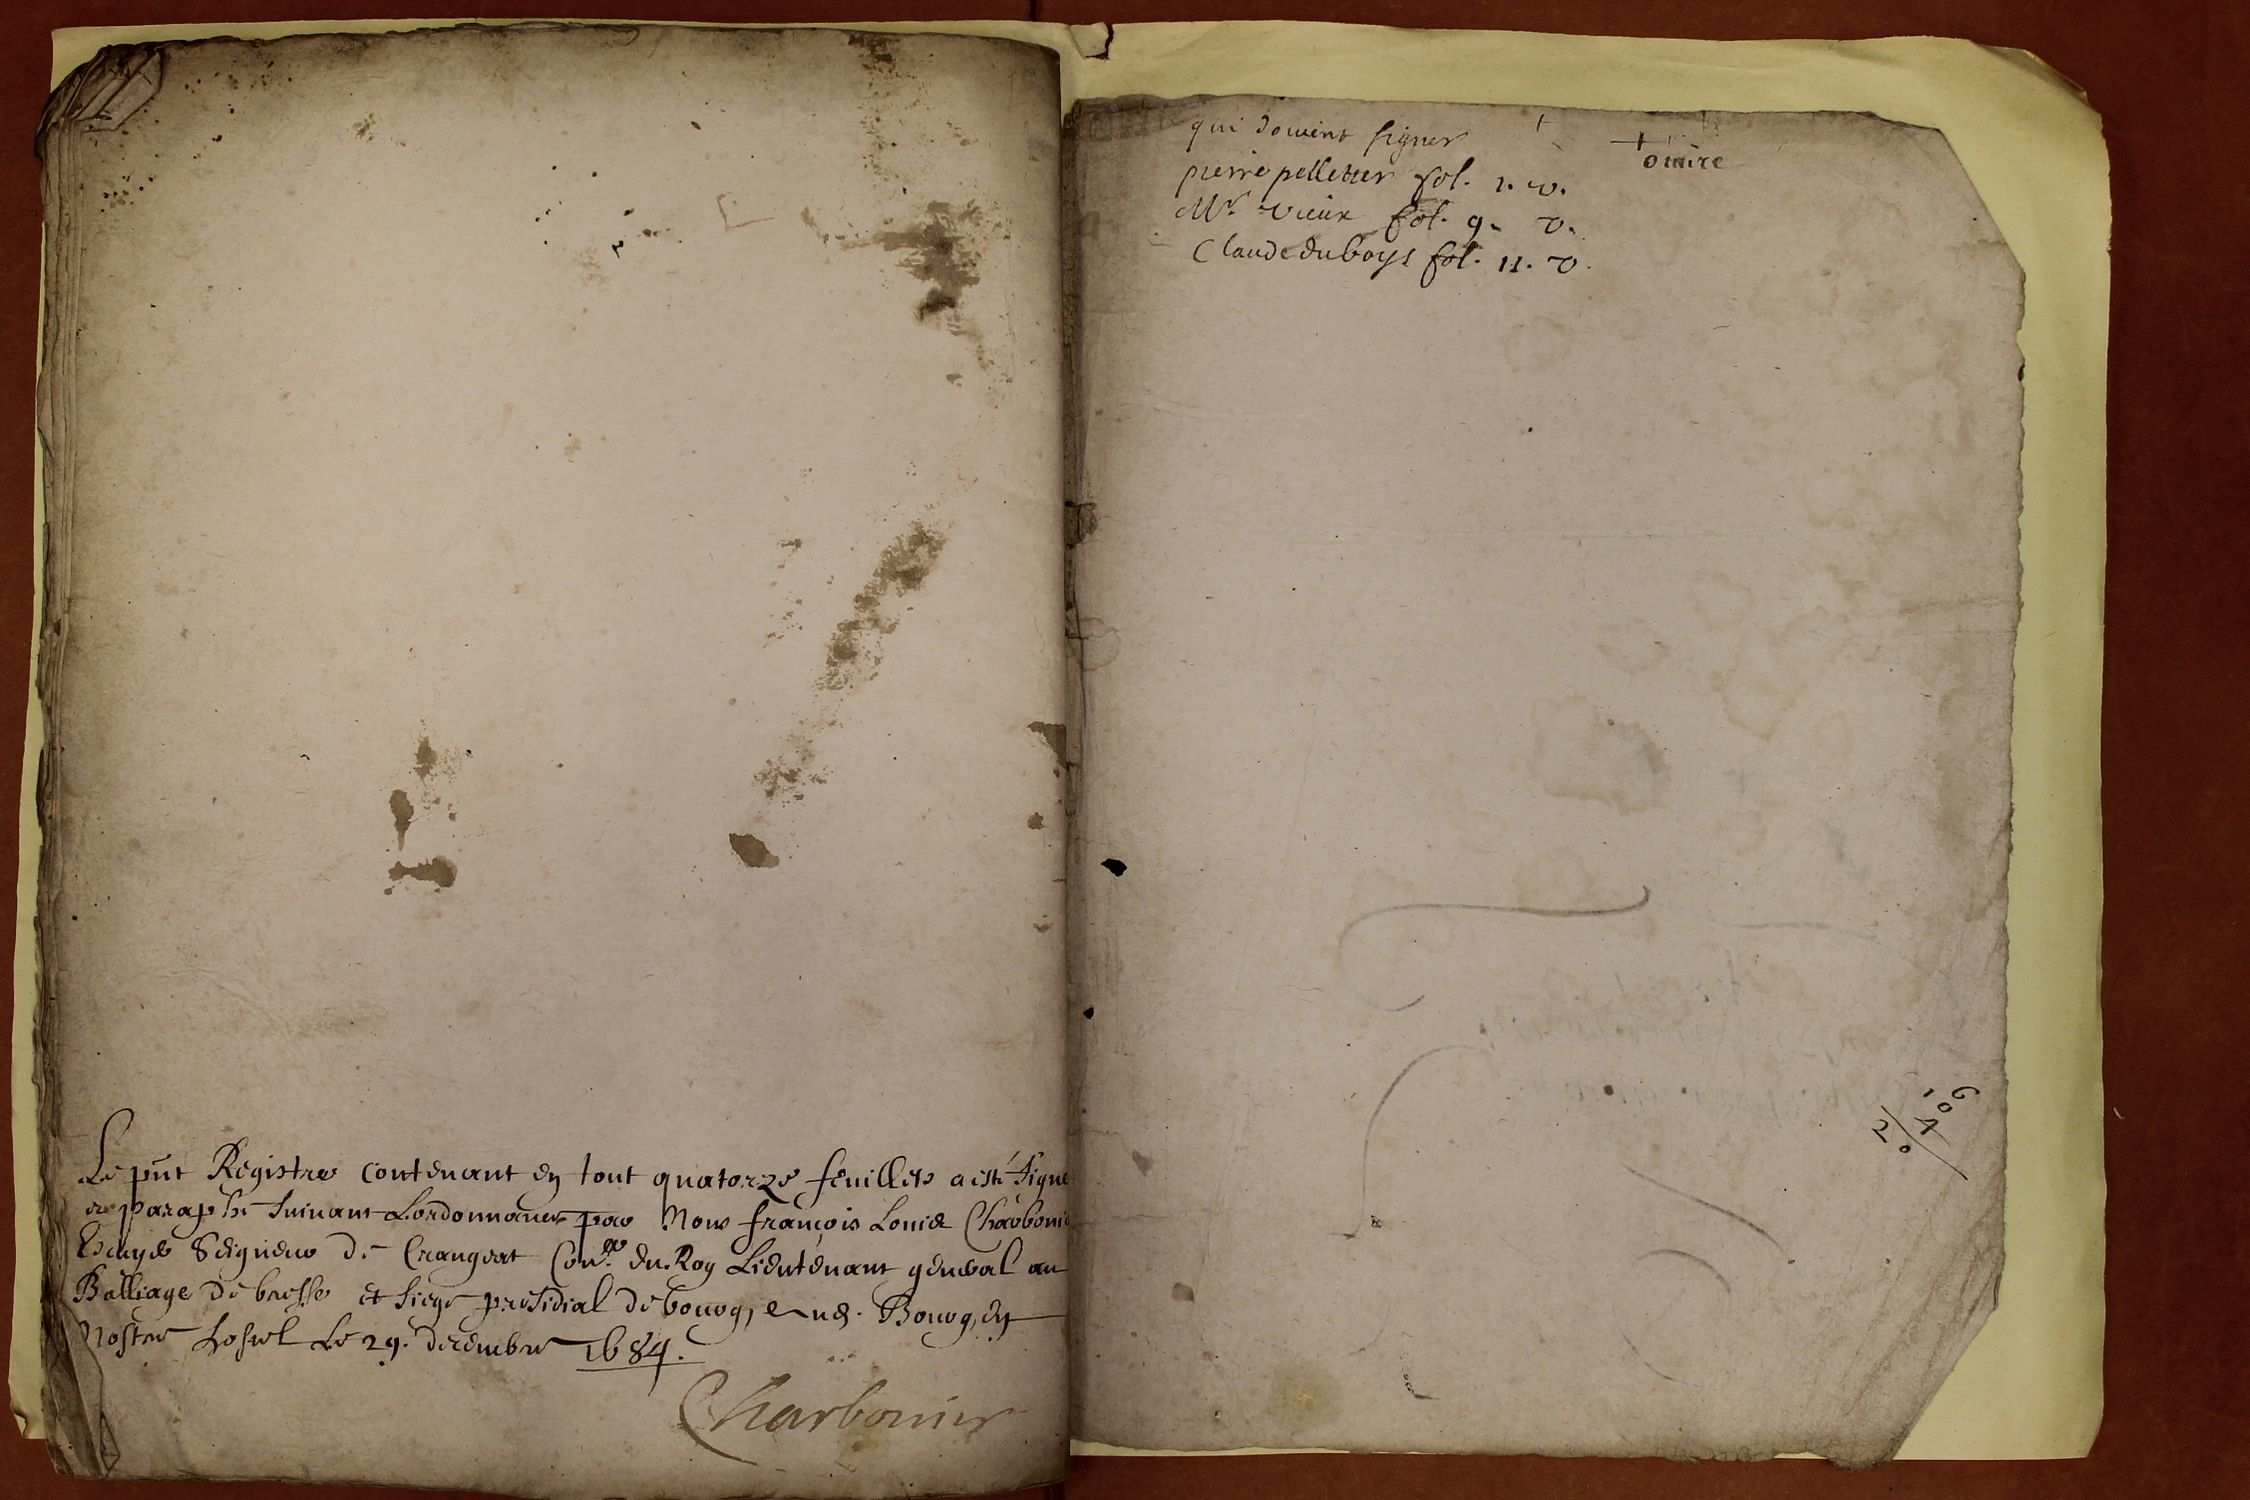 Le pnt Registre contenant en tout quatorze feuillets a esté signé
et paraphé suivant Lordonnance par Nous françois Louis Charbonie
Escuyer Seigneur de Crangeat Con.er du Roy Lieutenant general au
Balliage de bresse et siege presidial de bourg, A Bourg, en
Nostre hostel Le 29. decembre 1684.
Charbonier
qui doivent signer
pierre pelletier fol. 1. v.
Mr vieux fol. 9. v.
Claude du boys fol. 11. v.
6
104
20